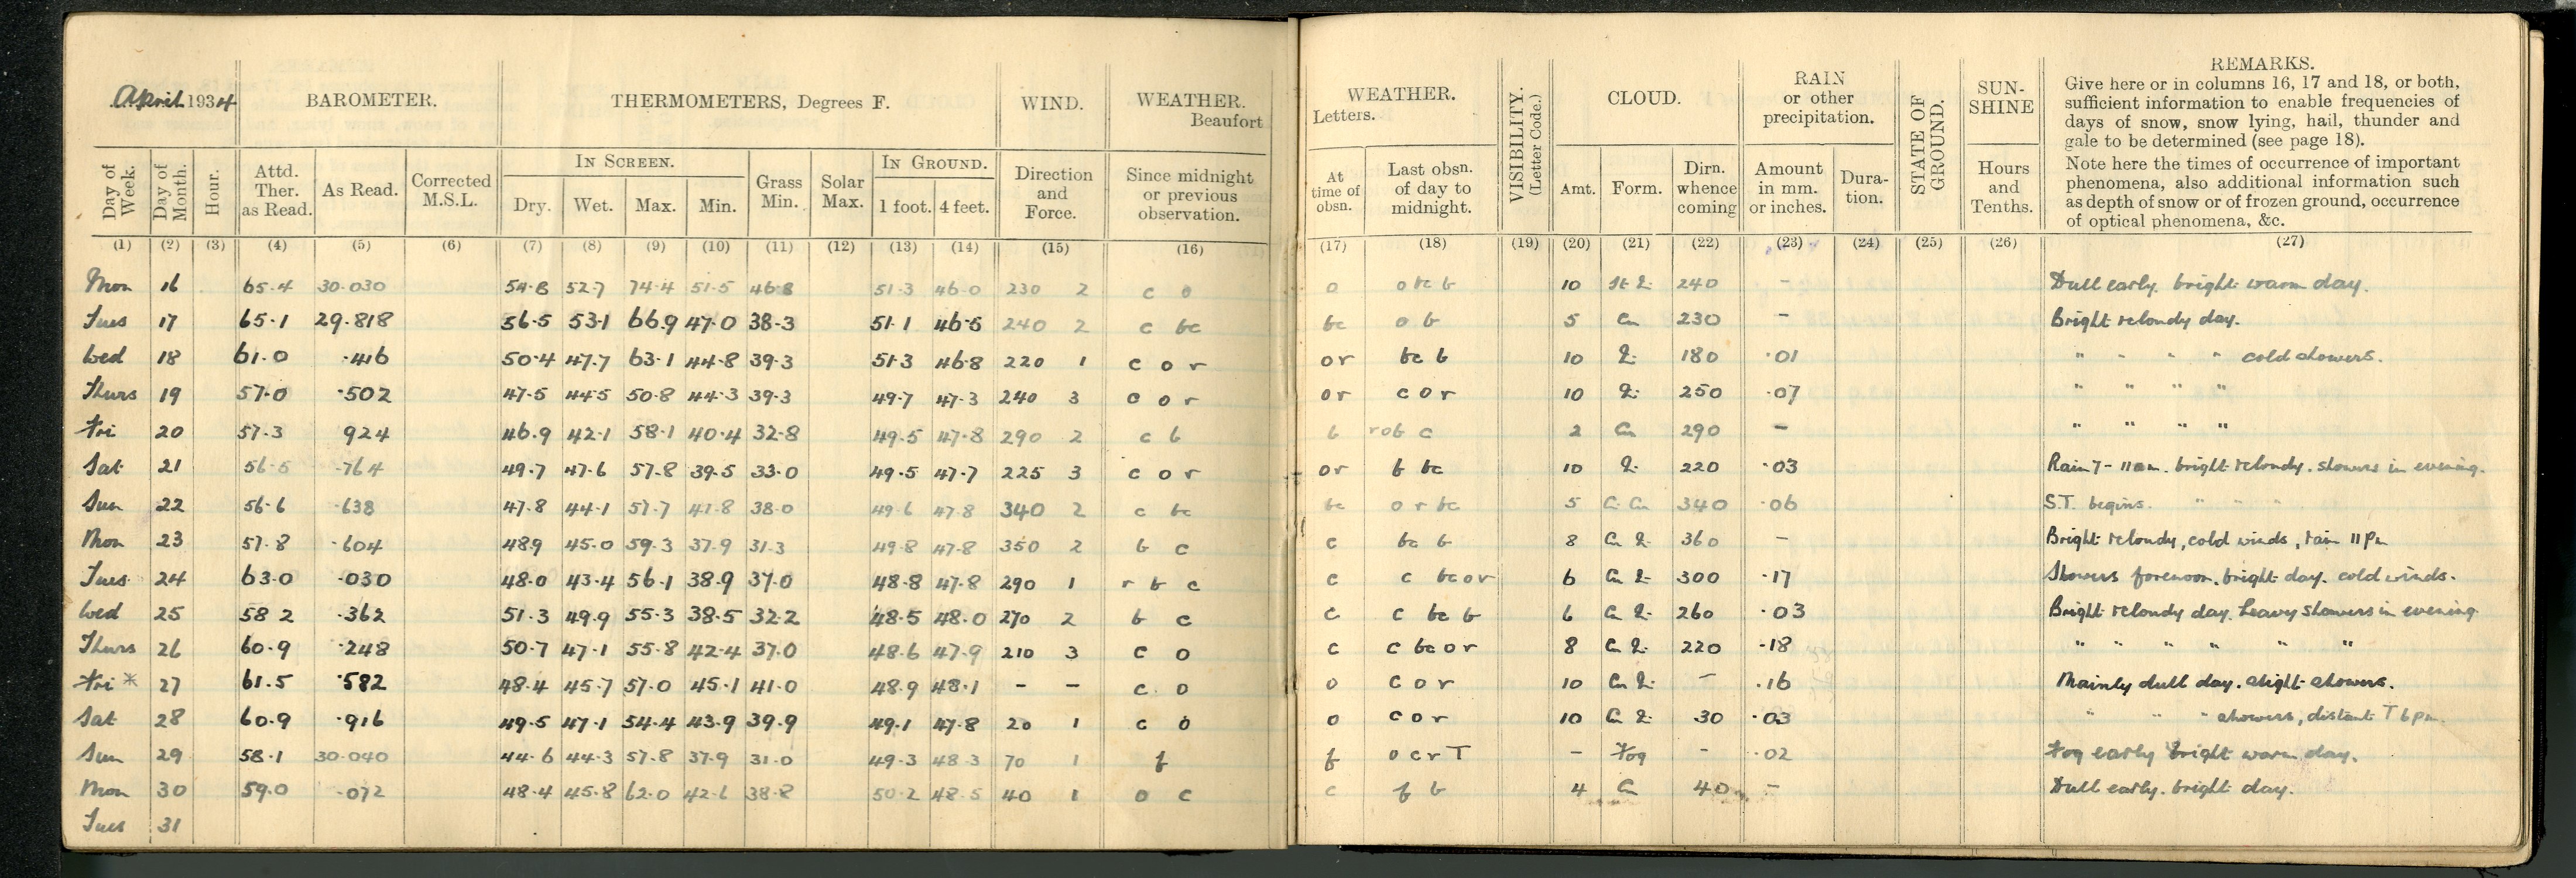 April 1934 BAROMETER. THERMOMETERS, Degrees F. WIND. WEATHER. Beaufort
Day of Week. Day of Month. Hour. Attd. Ther. as Read. As Read. Corrected M.S.L. IN SCREEN. Dry. Wet. Max. Min. Grass Min. Solar Max. IN GROUND. 1 foot. 4 feet. Direction and Force. Since midnight or previous observation.
(1) (2) (3) (4) (5) (6) (7) (8) (9) (10) (11) (12) (13) (14) (15) (16)
WEATHER. Letters. VISIBILITY. (Letter Code.) CLOUD. RAIN or other precipitation. STATE OF GROUND. SUN-SHINE REMARKS.
Give here or in columns 16, 17 and 18, or both,
sufficient information to enable frequencies of
days of snow, snow lying, hail, thunder and
gale to be determined (see page 18).
Note here the times of occurrence of important
phenomena, also additional information such
as depth of snow or of frozen ground, occurrence
of optical phenomena, &c.
At time of obsn. Last obsn. of day to midnight. Amt. Form. Dirn. whence coming Amount in mm. or inches. Dura-tion. Hours and Tenths.
(17) (18) (19) (20) (21) (22) (23) (24) (25) (26) (27)
Mon 16 65.4 30.030 54.8 52.7 74.4 51.5 46.8 51.3 46.0 230 2 c o o o bc b 10 240 - Dull early. bright warm day.
Tues 17 65.1 29.818 56.5 53.1 66.9 47.0 38.3 51.1 46.5 240 2 c bc bc o b 5 Cu 230 - Bright & cloudy day.
Wed 18 61.0 .416 50.4 47.7 63.1 44.8 39.3 51.3 46.8 220 1 c o r o r bc b 10 180 .01 " " " " cold showers.
Thurs 19 57.0 .502 47.5 44.5 50.8 44.3 39.3 49.7 47.3 240 3 c o r o r c o r 10 250 .07 " " " "
Fri 20 57.3 924 46.9 42.1 58.1 40.4 32.8 49.5 47.8 290 2 c b b r o b c 2 Cu 290 - " " " "
Sat 21 56.5 .764 49.7 47.6 57.8 39.5 33.0 49.5 47.7 225 3 c o r o r b bc 10 220 .03 Rain 7 - 11 am. bright & cloudy. showers in evening.
Sun 22 56.6 .638 47.8 44.1 57.7 41.8 38.0 49.6 47.8 340 2 c bc bc o r bc 5 340 .06 S.T. begins. " " "
Mon 23 57.8 .604 48.9 45.0 59.3 37.9 31.3 49.8 47.8 350 2 b c c bc b 8 Cu 360 - Bright & cloudy, cold winds, rain 11 pm
Tues 24 63.0 .030 48.0 43.4 56.1 38.9 37.0 48.8 47.8 290 1 r b c c c bc o r 6 Cu 300 .17 Showers forenoon. bright day. cold winds.
Wed 25 58.2 .362 51.3 49.9 55.3 38.5 32.2 48.5 48.0 270 2 b c c c bc b 6 Cu 260 .03 Bright & cloudy day. heavy showers in evening.
Thurs 26 60.9 .248 50.7 47.1 55.8 42.4 37.0 48.6 47.9 210 3 c o c c bc o r 8 Cu 220 .18 " " " " " "
Fri * 27 61.5 .582 48.4 45.7 57.0 45.1 41.0 48.9 48.1 - - c o o c o r 10 Cu - .16 Mainly dull day. slight showers.
Sat 28 60.9 .916 49.5 47.1 54.4 43.9 39.9 49.1 47.8 20 1 c o o c o r 10 Cu 30 .03 " " " showers, distant T 6 pm.
Sun 29 58.1 30.040 44.6 44.3 57.8 37.9 31.0 49.3 48.3 70 1 f f o c r T - Fog - .02 Fog early bright warm day.
Mon 30 59.0 .072 48.4 45.8 62.0 42.6 38.8 50.2 48.5 40 1 o c c f b 4 40 - Dull early. bright day.
Tues 31